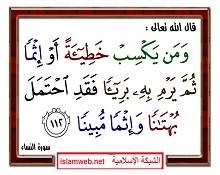 قال الله تعالى :
وَمَن يَكْسِبْ خَطِيئَةً أَوْ إِثْمًا
ثُمَّ يَرْمِ بِهِۦ بَرِيٓـًٔا فَقَدِ ٱحْتَمَلَ
بُهْتَٰنًا وَإِثْمًا مُّبِينًا ١١٢
سورة النساء
islamweb.net الشبكة الإسلامية